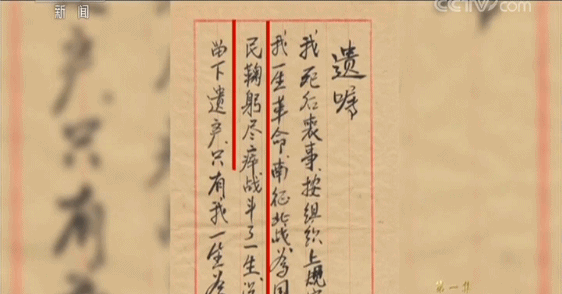 新闻
CCTV.com
遗嘱
我死后丧事按组织上规定
我一生革命南征北战为国
民鞠躬尽瘁战斗了一生没
留下遗产只有我一生为
产只有
第一集